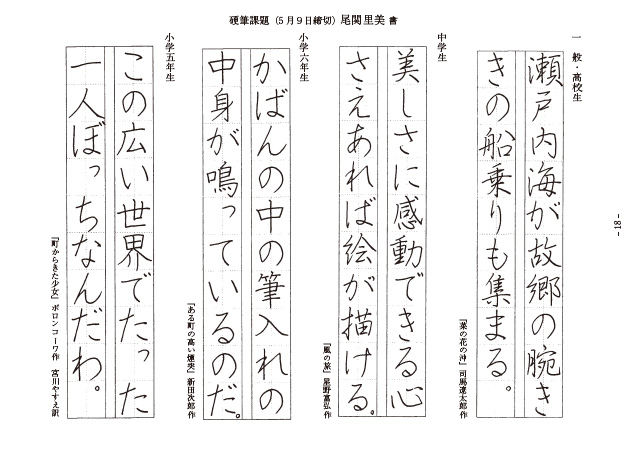 硬筆課題（5月9日締切）尾関里美 書
一般・高校生
瀬戸内海が故郷の腕き
きの船乗りも集まる。
『菜の花の沖』司馬遼太郎作
中学生
美しさに感動できる心
さえあれば絵が描ける。
『風の旅』星野富弘作
小学六年生
かばんの中の筆入れの
中身が鳴っているのだ。
『ある町の高い煙突』新田次郎作
小学五年生
この広い世界でたった
一人ぼっちなんだわ。
『町からきた少女』ボロンコーワ作 宮川やすえ訳
- 18 -